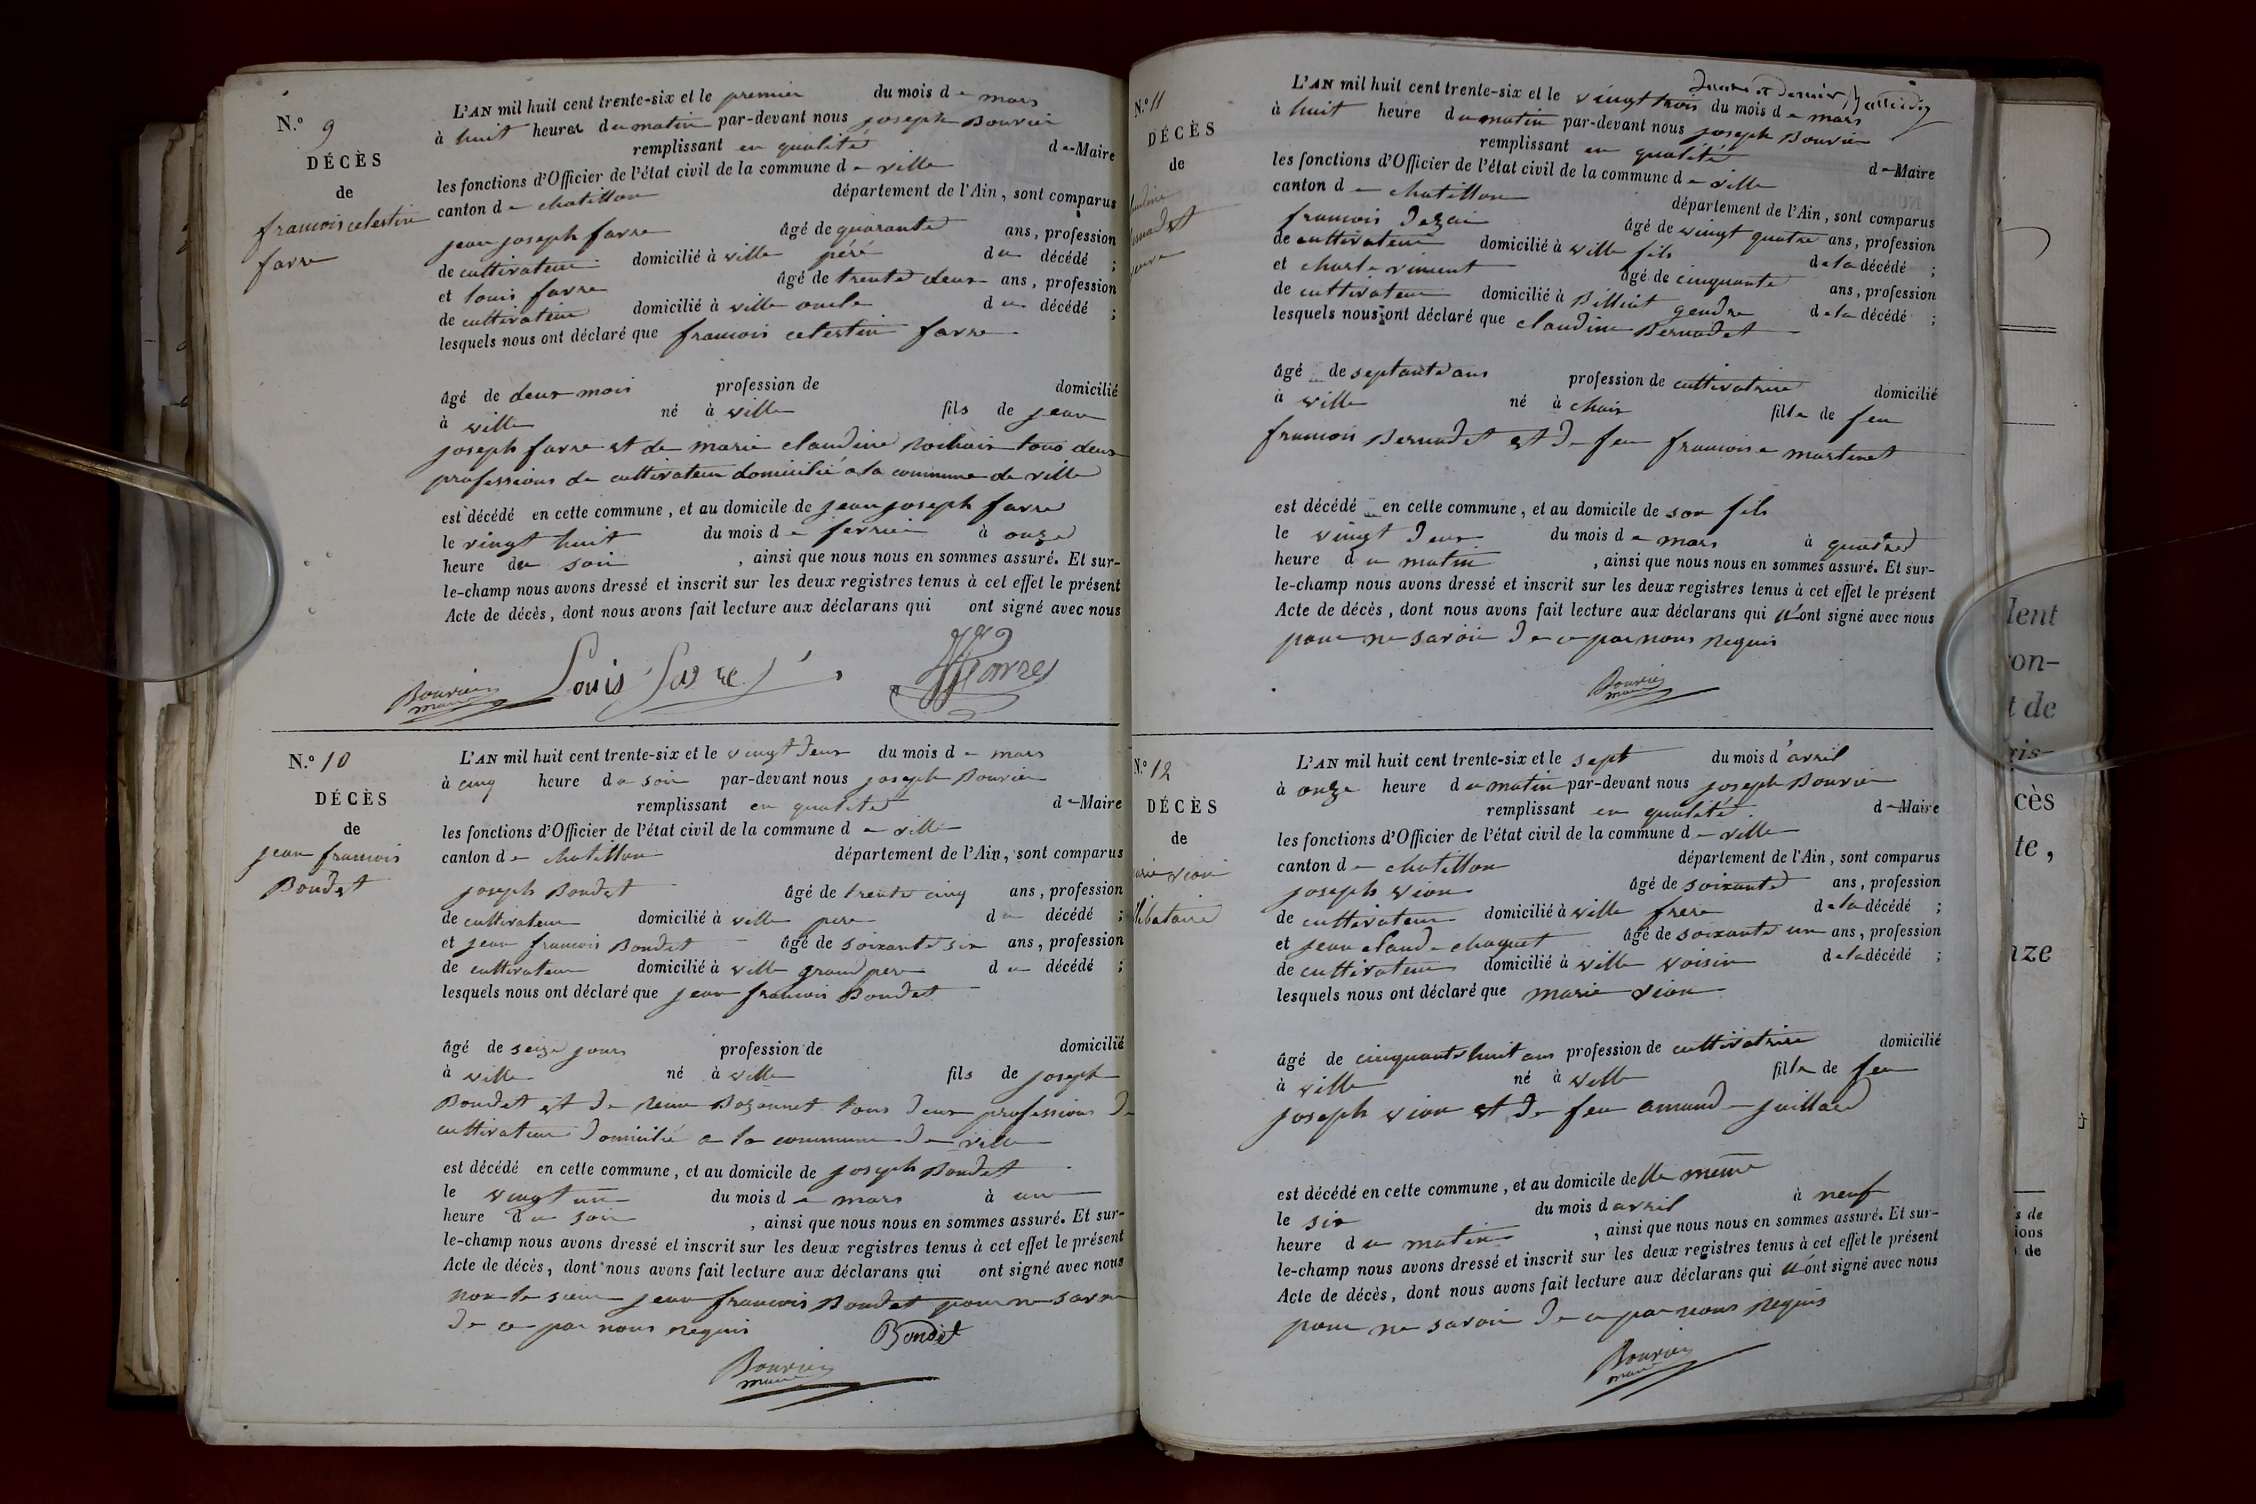 N.o 9
DÉCÈS
de
francois celestin
farre
L'AN mil huit cent trente-six et le premier du mois de mars
à huit heures du matin par-devant nous joseph Bouvier
remplissant en qualité de Maire
les fonctions d'Officier de l'état civil de la commune de ville
canton de chatillon département de l'Ain, sont comparus
jean joseph farre âgé de quarante ans, profession
de cultivateur domicilié à ville péré du décédé ;
et louis farre âgé de trente deux ans, profession
de cultivateur domicilié à ville oncle du décédé ;
lesquels nous ont déclaré que francois celestin farre
âgé de deux mois profession de domicilié
à ville né à ville fils de jean
joseph farre et de marie claudine tous deux
professions de cultivateur domicilié a la commune de ville
est décédé en cette commune, et au domicile de jean joseph farre
le vingt huit du mois de fevrier à onze
heure du soir , ainsi que nous nous en sommes assuré. Et sur-
le-champ nous avons dressé et inscrit sur les deux registres tenus à cet effet le présent
Acte de décès, dont nous avons fait lecture aux déclarans qui ont signé avec nous
Bouvier Louis farre JJfarre
maire
N.o 10
DÉCÈS
de
jean francois
Boudet
L'AN mil huit cent trente-six et le vingt deux du mois de mars
à cinq heure du soir par-devant nous joseph Bouvier
remplissant en qualité de Maire
les fonctions d'Officier de l'état civil de la commune de ville
canton de chatillon département de l'Ain, sont comparus
joseph Boudet âgé de trente cinq ans, profession
de cultivateur domicilié à ville pere du décédé ;
et jean francois Boudet âgé de soixante six ans, profession
de cultivateur domicilié à ville grand pere du décédé ;
lesquels nous ont déclaré que jean francois Boudet
âgé de seize jours profession de domicilié
à ville né à ville fils de joseph
Boudet et de Bozonnet tous deux professions de
cultivateur domicilié a la commune de ville
est décédé en cette commune, et au domicile de joseph Boudet
le vingt un du mois de mars à un
heure du soir , ainsi que nous nous en sommes assuré. Et sur-
le-champ nous avons dressé et inscrit sur les deux registres tenus à cet effet le présent
Acte de décès, dont nous avons fait lecture aux déclarans qui ont signé avec nous
non le sieur jean francois Boudet pour ne savoir
de ce par nous requis Boudet
Bouvier
maire
N.o 11
DÉCÈS
de
L'AN mil huit cent trente-six et le vingt trois du mois de mars
à huit heure du matin par-devant nous joseph Bouvier
remplissant en qualité de Maire
les fonctions d'Officier de l'état civil de la commune de ville
canton de chatillon département de l'Ain, sont comparus
francois âgé de vingt quatre ans, profession
de cultivateur domicilié à ville fils de la décédé ;
et charle vincent âgé de cinquante ans, profession
de cultivateur domicilié à Billiat gendre de la décédé ;
lesquels nous ont déclaré que claudine Bernadet
âgé de septante ans profession de cultivatrice domicilié
à ville né à chaix fille de feu
francois Bernadet et de feu francoise martinet
est décédé en cette commune, et au domicile de son fils
le vingt deux du mois de mars à quatre
heure du matin , ainsi que nous nous en sommes assuré. Et sur-
le-champ nous avons dressé et inscrit sur les deux registres tenus à cet effet le présent
Acte de décès, dont nous avons fait lecture aux déclarans qui n'ont signé avec nous
pour ne savoir de ce par nous requis
Bouvier
maire
N.o 12
DÉCÈS
de
L'AN mil huit cent trente-six et le sept du mois d'avril
à onze heure du matin par-devant nous joseph Bouvier
remplissant en qualité de Maire
les fonctions d'Officier de l'état civil de la commune de ville
canton de chatillon département de l'Ain, sont comparus
joseph vion âgé de soixante ans, profession
de cultivateur domicilié à ville frere de la décédé ;
et jean claude chaquet âgé de soixante un ans, profession
de cultivateur domicilié à ville voisin de la décédé ;
lesquels nous ont déclaré que marie vion
âgé de cinquante huit ans profession de cultivatrice domicilié
à ville né à ville fille de feu
joseph vion et de feu amande juillard
est décédé en cette commune, et au domicile delle meme
le six du mois d avril à neuf
heure du matin , ainsi que nous nous en sommes assuré. Et sur-
le-champ nous avons dressé et inscrit sur les deux registres tenus à cet effet le présent
Acte de décès, dont nous avons fait lecture aux déclarans qui n'ont signé avec nous
pour ne savoir de ce par nous requis
Bouvier
maire